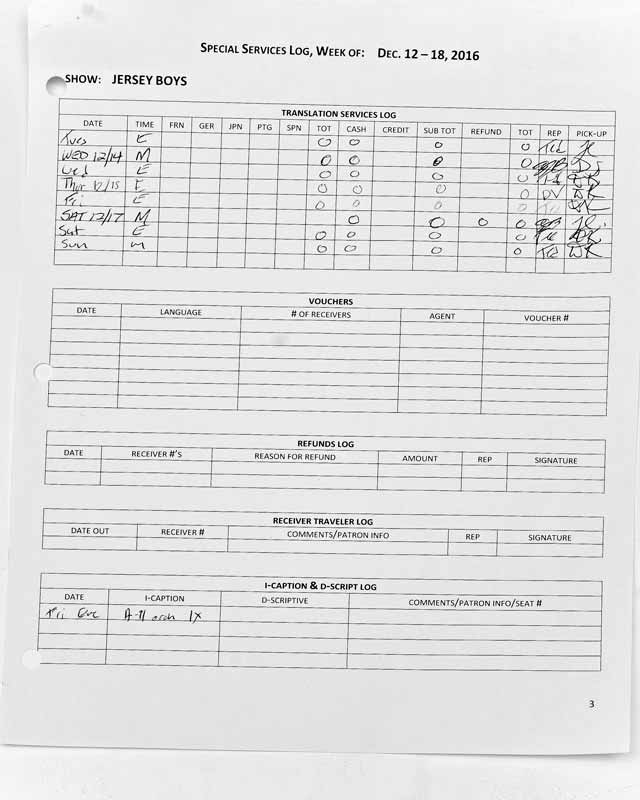 SPECIAL SERVICES LOG, WEEK OF: DEC. 12 – 18, 2016
SHOW: JERSEY BOYS
TRANSLATION SERVICES LOG
DATE TIME FRN GER JPN PTG SPN TOT CASH CREDIT SUB TOT REFUND TOT REP PICK-UP
Tues E 0 0 0 0
WED 12/14 M 0 0 0 0
Wed E 0 0 0 0
Thur 12/15 E 0 0 0 0 DV
Fri E 0 0 0 0
SAT 12/17 M 0 0 0 0
Sat E 0 0 0 0
Sun M 0 0 0 0
VOUCHERS
DATE LANGUAGE # OF RECEIVERS AGENT VOUCHER #
REFUNDS LOG
DATE RECEIVER #'S REASON FOR REFUND AMOUNT REP SIGNATURE
RECEIVER TRAVELER LOG
DATE OUT RECEIVER # COMMENTS/PATRON INFO REP SIGNATURE
I-CAPTION & D-SCRIPT LOG
DATE I-CAPTION D-SCRIPTIVE COMMENTS/PATRON INFO/SEAT #
Fri Eve A-11 orch 1X
3